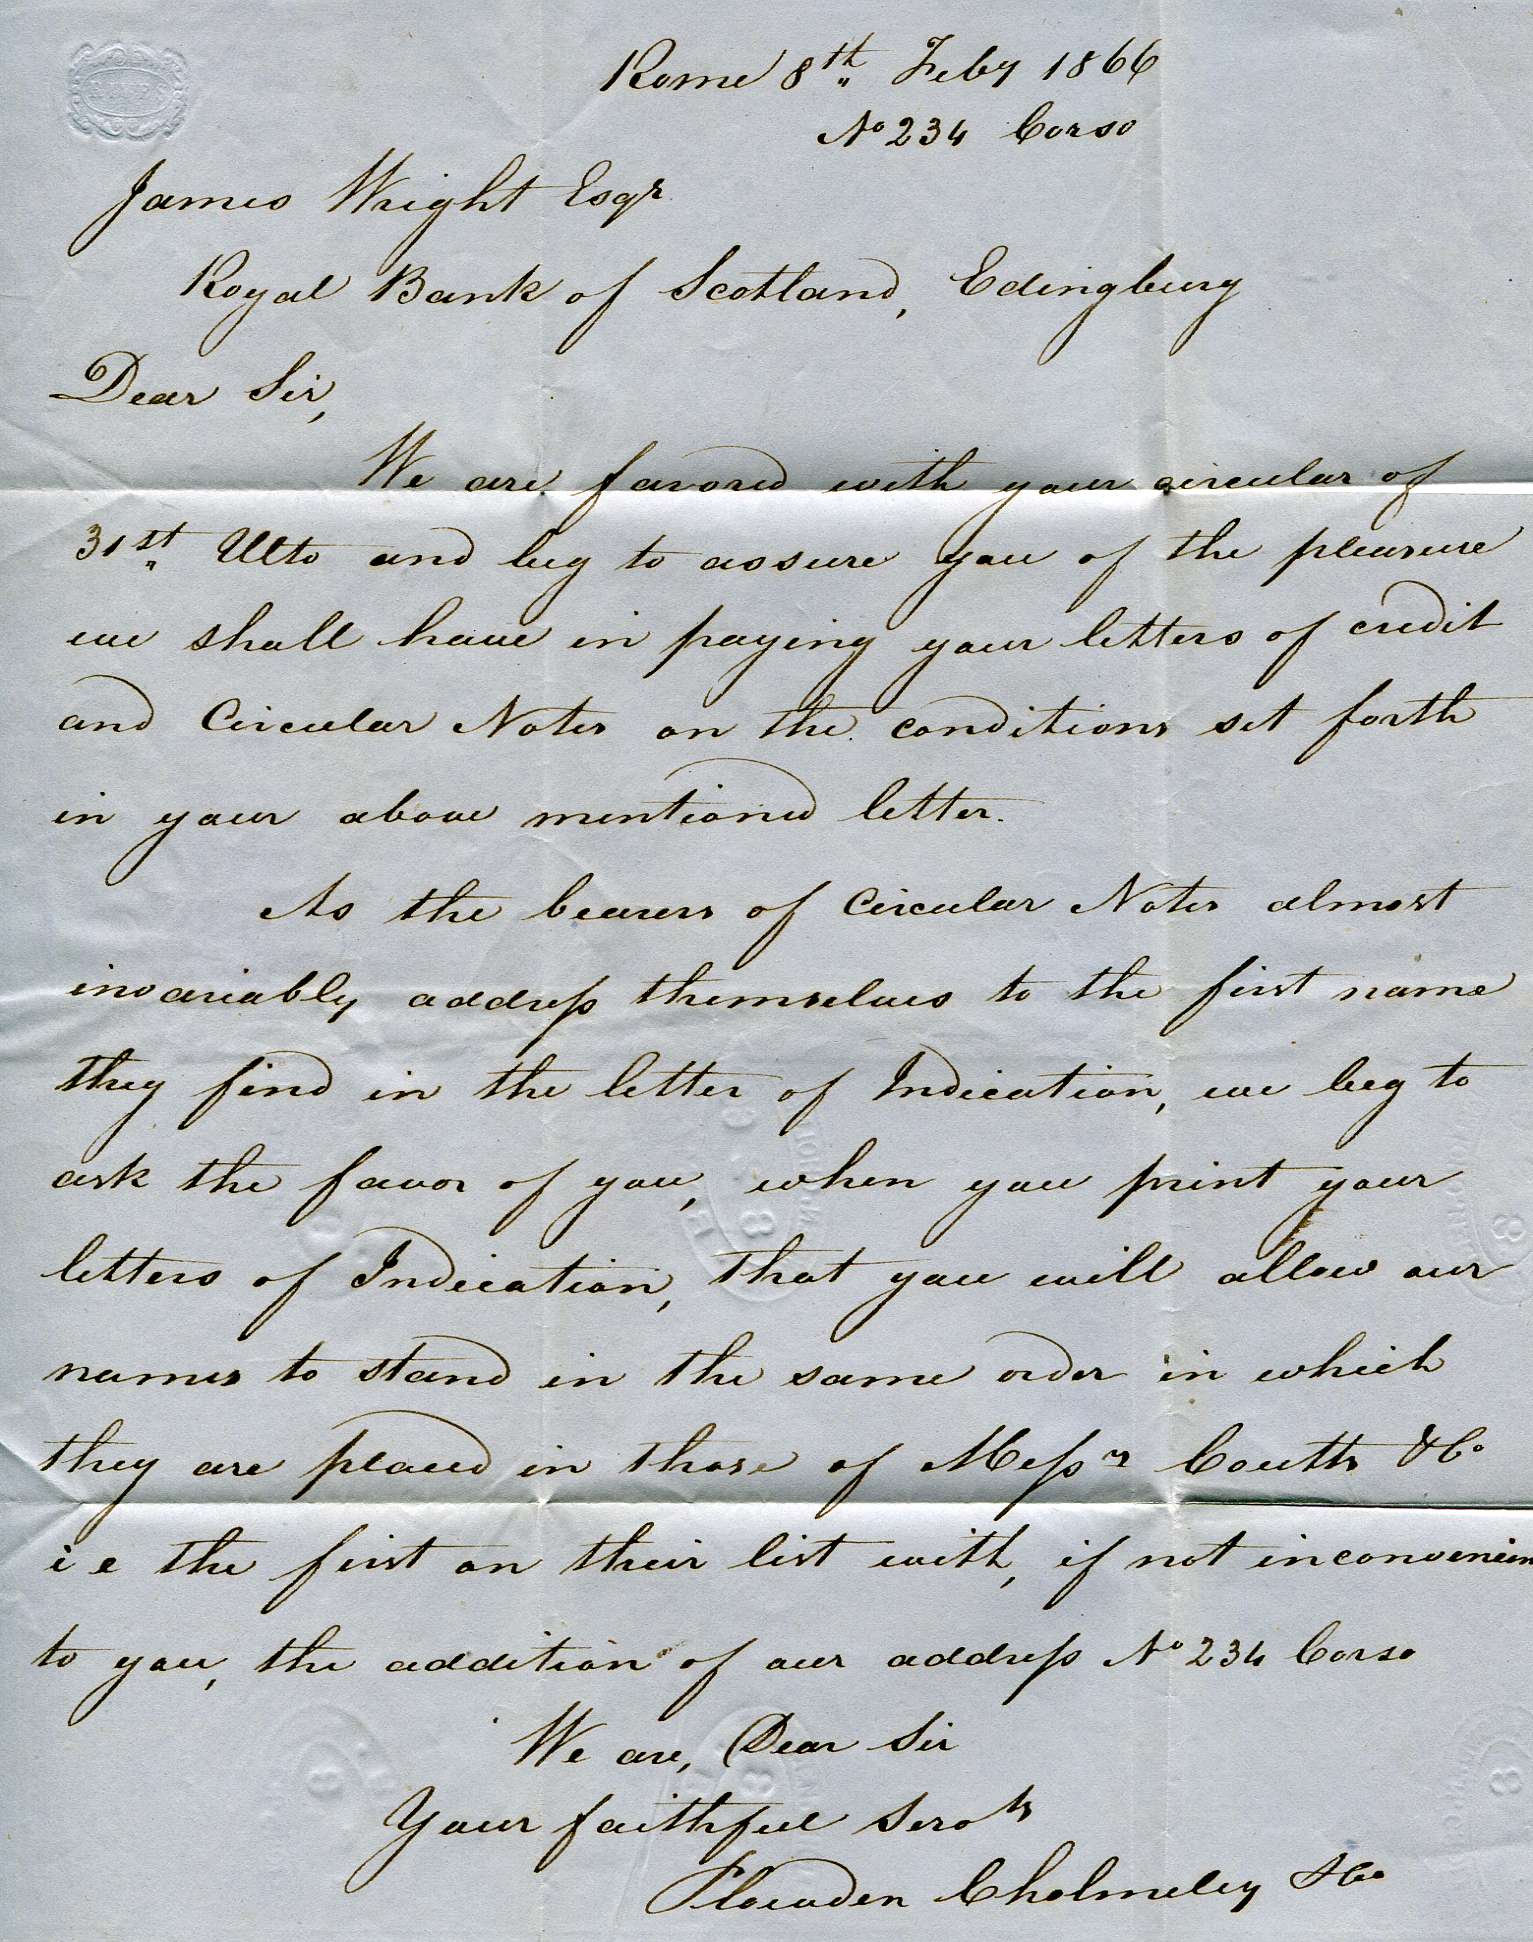 Rome 8th Feby 1866
No 234 Corso
James Wright Esqr
Royal Bank of Scotland, Edingburg
Dear Sir,
We are favored with your circular of
31st Ulto and beg to assure you of the pleasure
we shall have in paying your letters of credit
and Circular Notes on the conditions set forth
in your above mentioned letter.
As the bearers of Circular Notes almost
invariably addreſs themselves to the first name
they find in the letter of Indication, we beg to
ask the favor of you, when you print your
letters of Indication, that you will allow our
names to stand in the same order in which
they are placed in those of Meſsrs Coutts & Co
i e the first on their list with, if not inconvenien
to you, the addition of our addreſs No 234 Corso
We are, Dear Sir
Your faithful Servts
Plowden Cholmeley & Co